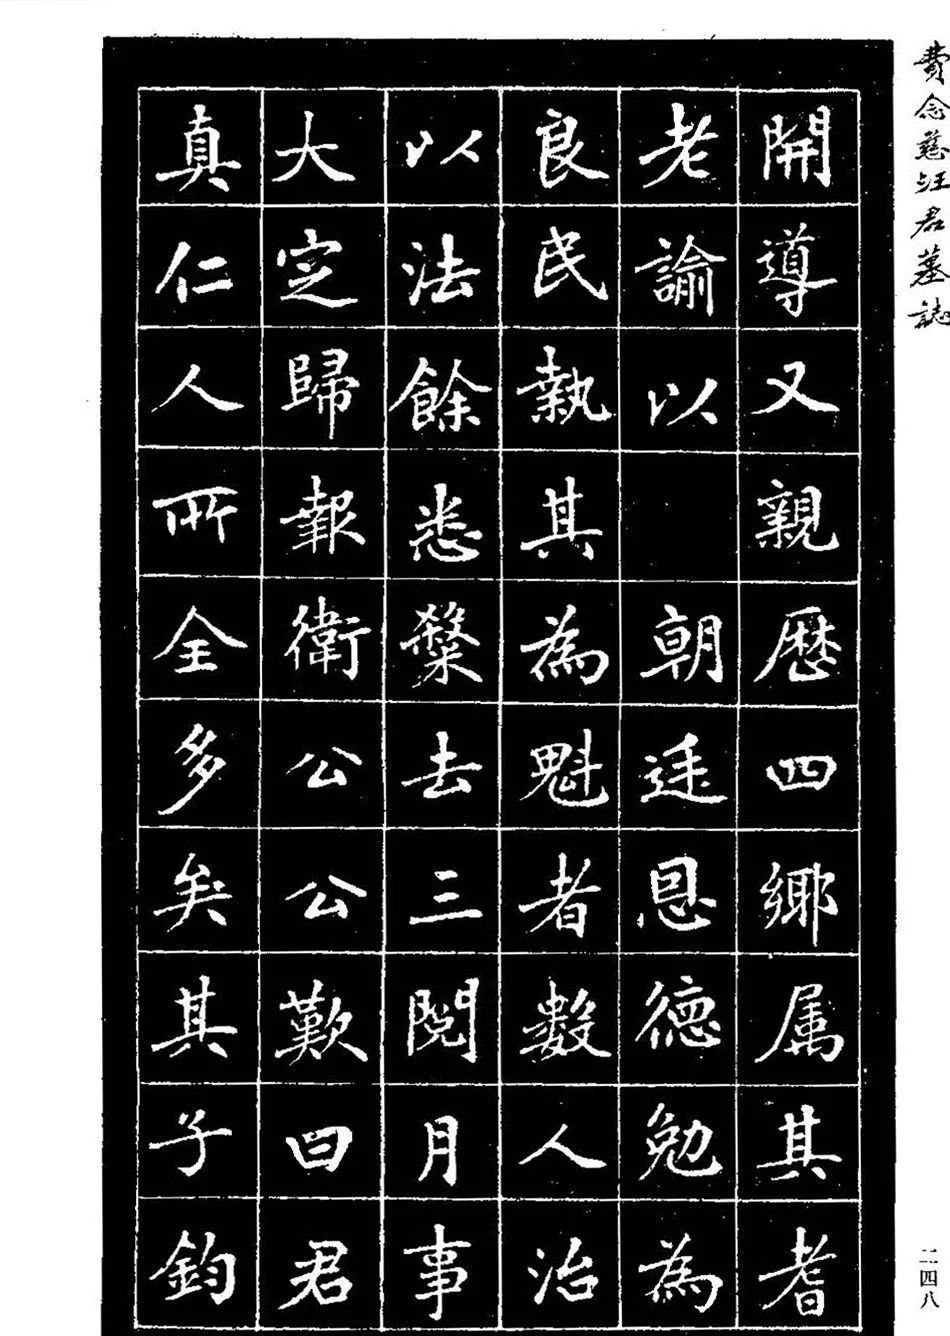 費念慈汪君墓誌
開導又親歷四鄉属其耆
老諭以 朝廷恩德勉為
良民執其為魁者數人治
以法餘悉去三閱月事
大定歸報衛公公歎曰君
真仁人所全多矣其子鈞
二四八